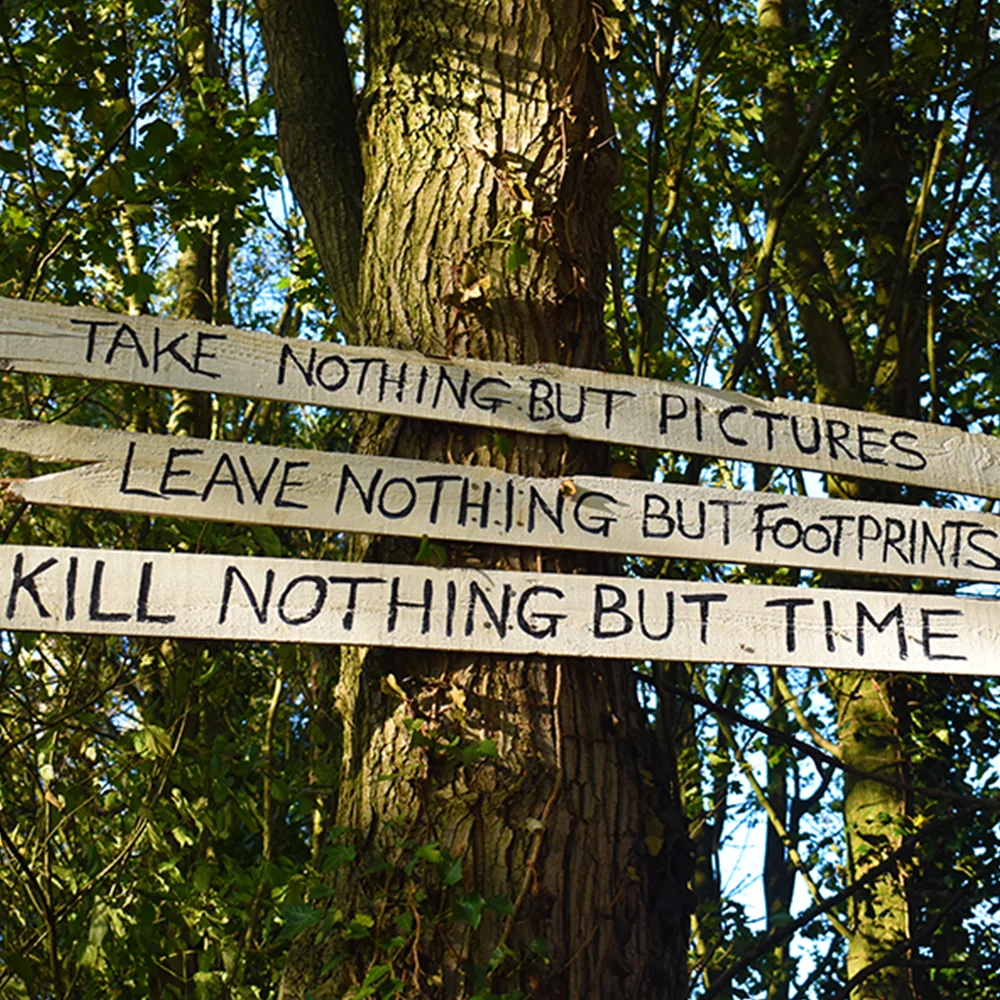 TAKE NOTHING BUT PICTURES
LEAVE NOTHING BUT FOOTPRINTS
KILL NOTHING BUT TIME